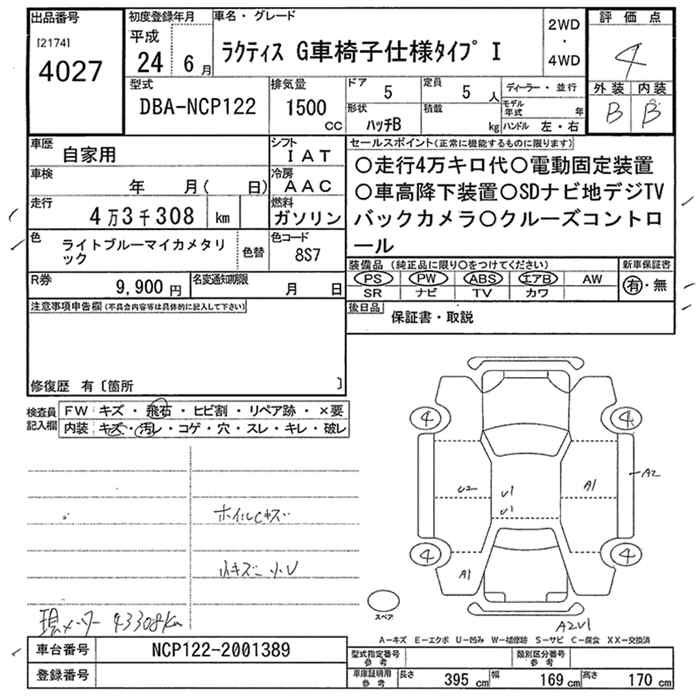 出品番号
[2174]
4027
初度登録年月
平成
24 6月
車名・グレード
ラクティス G車椅子仕様タイプ I
2WD
・
4WD
評価点
4
外装 内装
B B
型式
DBA-NCP122
排気量
1500
CC
ドア
5
定員
5 人
形状
ハッチB
積載
kg
ディーラー・並行
モデル年式 年
ハンドル 左・右
車歴
自家用
シフト
I A T
車検
年 月( 日)
冷房
A A C
走行
4万3千308 km
燃料
ガソリン
色
ライトブルーマイカメタリック
色替
色コード
8S7
R券
9,900 円
名変通知期限
月 日
セールスポイント(正常に機能するものに限ります)
○走行4万キロ代○電動固定装置
○車高降下装置○SDナビ地デジTV
バックカメラ○クルーズコントロ
ール
装備品(純正品に限り○をつけてください)
PS PW ABS エアB AW
SR ナビ TV カワ
新車保証書
有・無
後日品
保証書・取説
注意事項申告欄(不具合内容等は具体的に記入して下さい)
修復歴 有〔箇所 〕
検査員
記入欄
FW キズ・飛石・ヒビ割・リペア跡・×要
内装 キズ・汚レ・コゲ・穴・スレ・キレ・破レ
ホイルCキズ
小キズ 小U
現メーター 43308km
4 4
A2
U2 U1 A1
U1
4 4
A1
スペア
A2U1
A−キズ E−エクボ U−凹み W−補修跡 S−サビ C−腐食 XX−交換済
車台番号
NCP122-2001389
登録番号
型式指定番号
参考
類別区分番号
参考
車庫証明用
参考
長さ 395 cm 幅 169 cm 高さ 170 cm